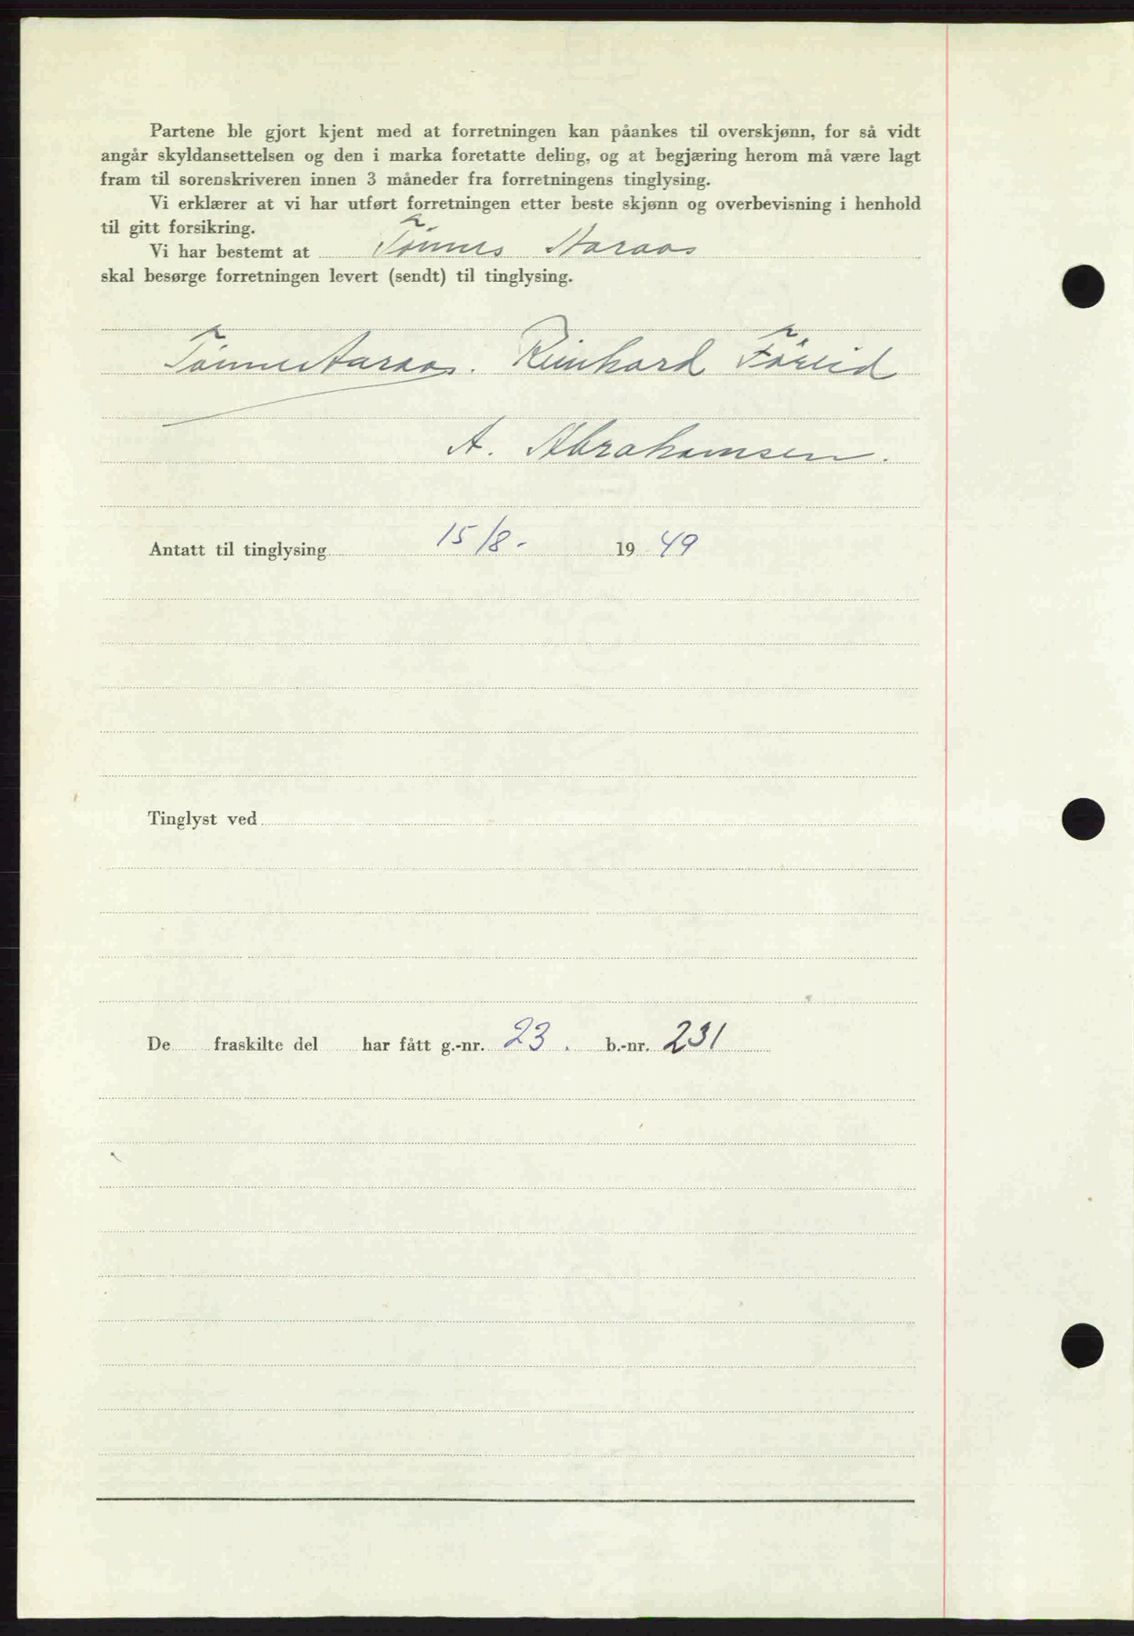 Partene ble gjort kjent med at forretningen kan påankes til overskjønn, for så vidt
angår skyldansettelsen og den i marka foretatte deling, og at begjæring herom må være lagt
fram til sorenskriveren innen 3 måneder fra forretningens tinglysing.
Vi erklærer at vi har utført forretningen etter beste skjønn og overbevisning i henhold
til gitt forsikring.
Vi har bestemt at Tönnes Aaraas
skal besørge forretningen levert (sendt) til tinglysing.
Tönnes Aaraas. Reinhard
A. Abrahamsen.
Antatt til tinglysing 15/8- 19 49
Tinglyst ved
De fraskilte del har fått g.-nr. 23. b.-nr. 231